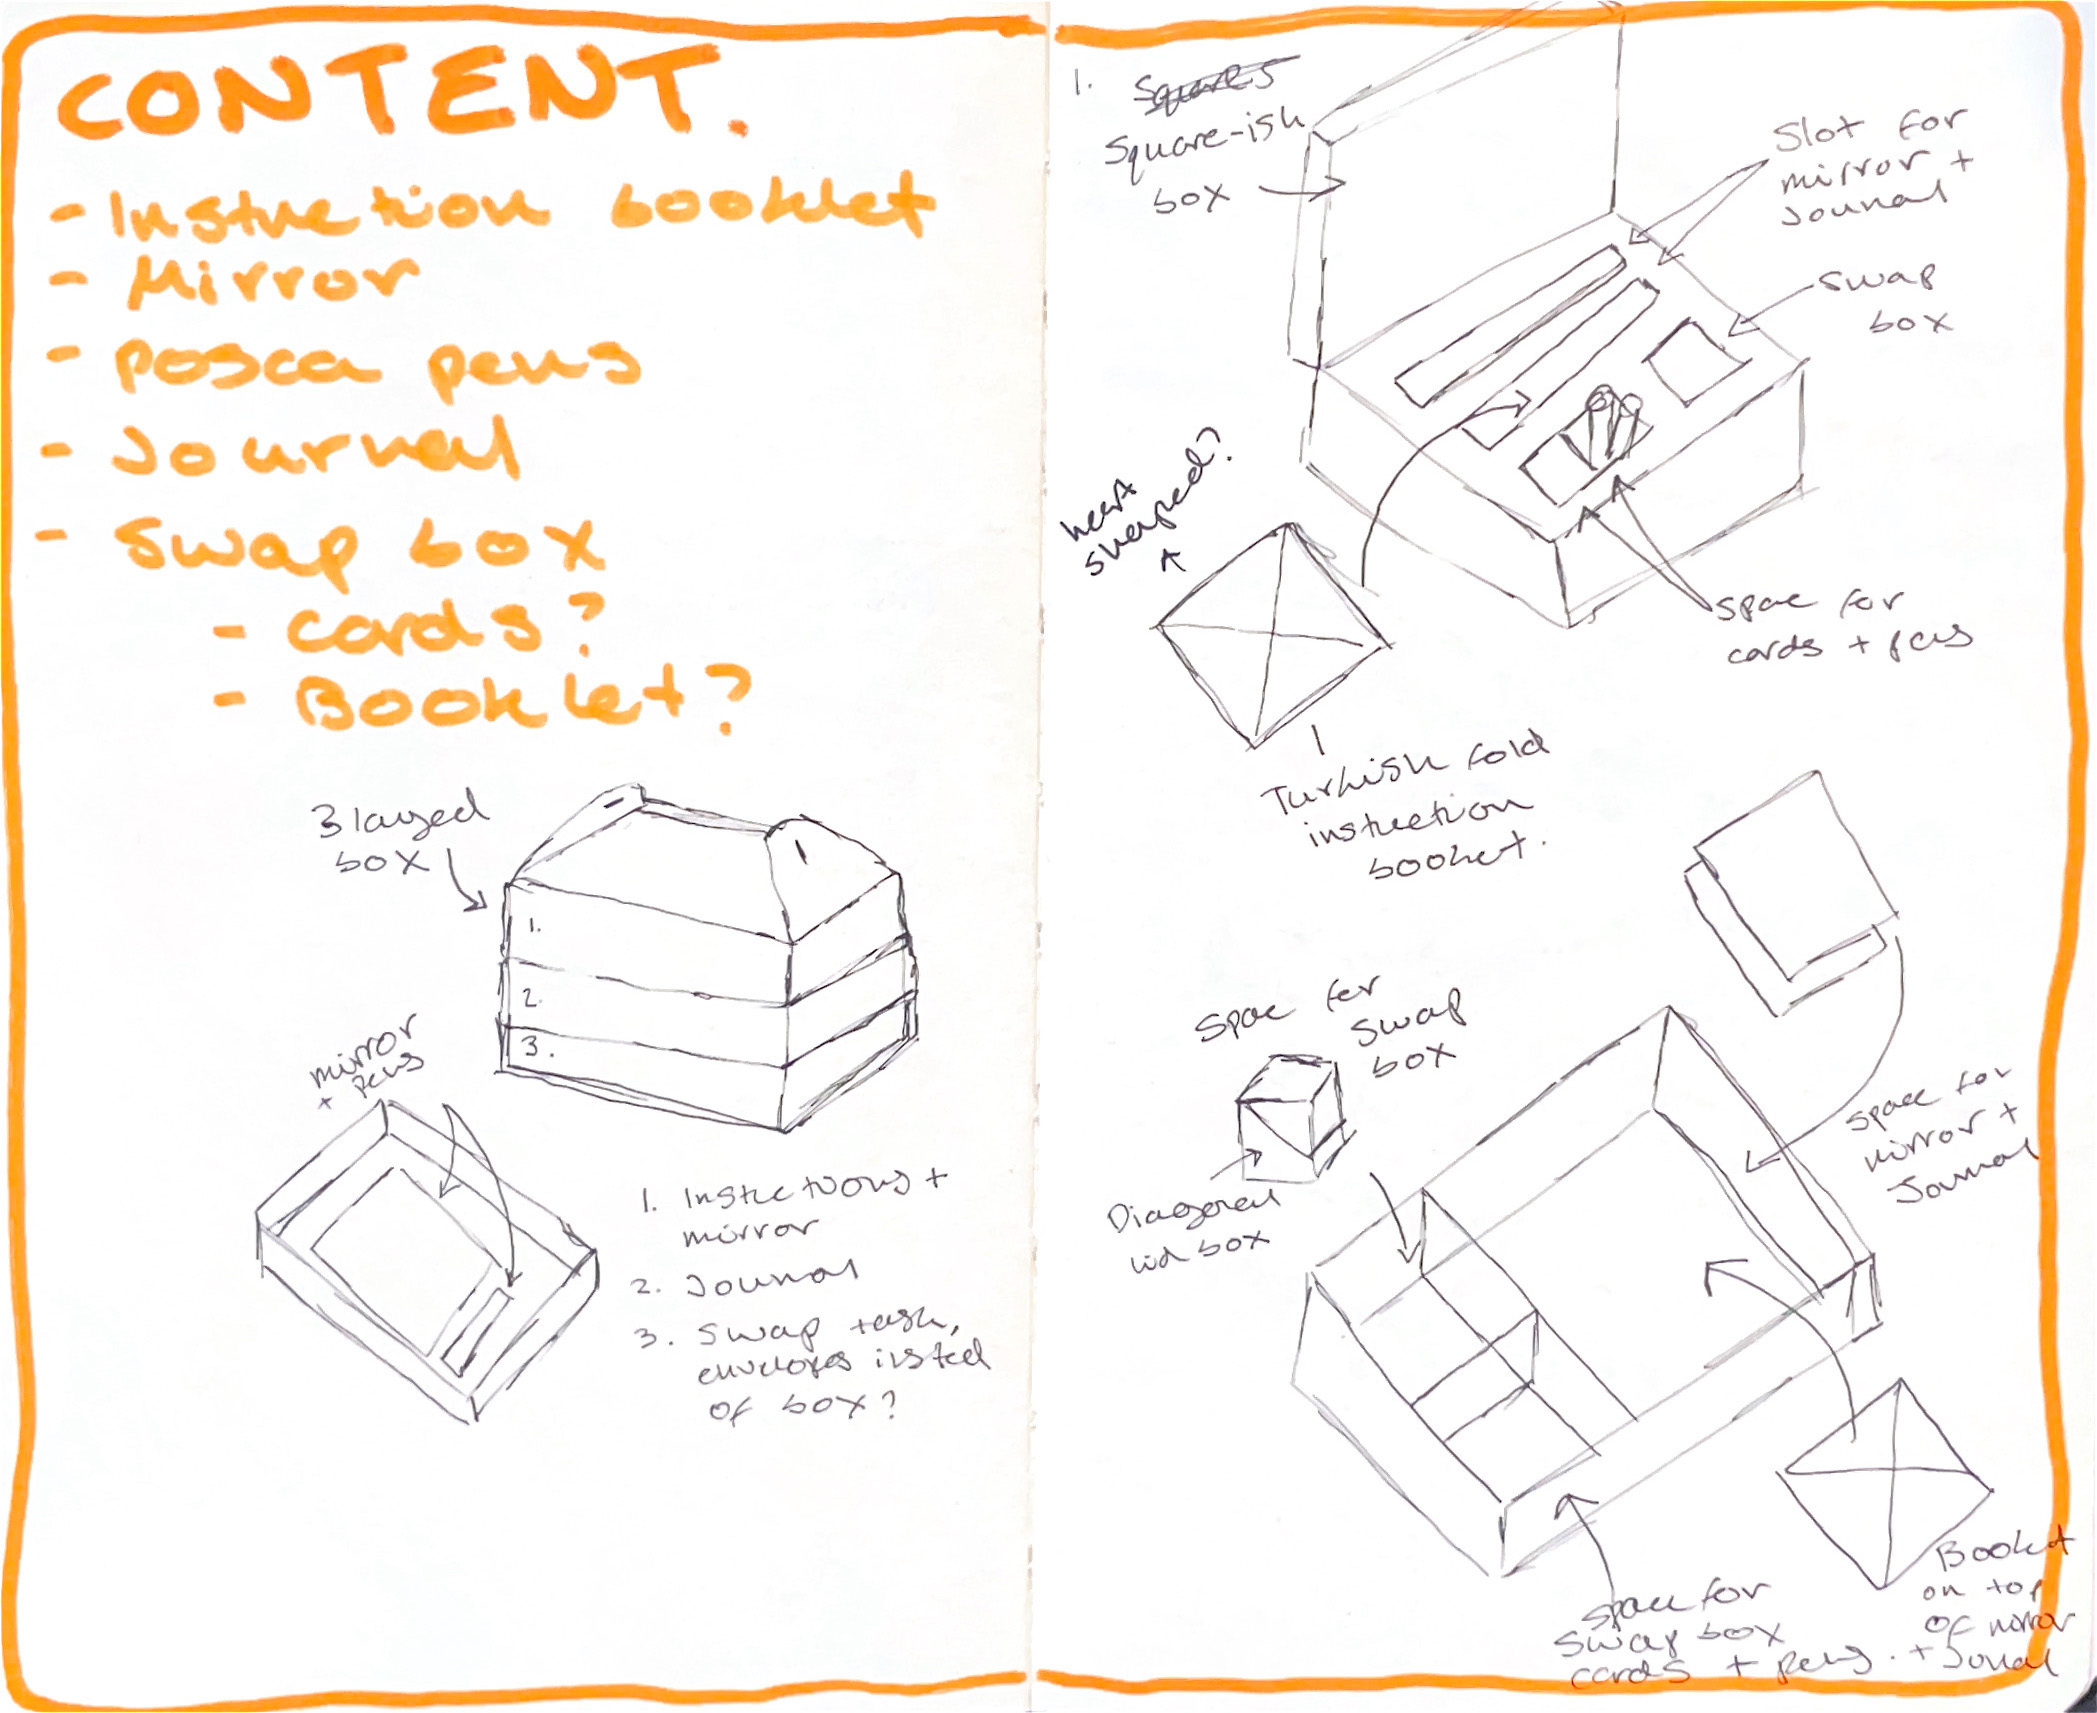 CONTENT.
- Instruction booklet
- Mirror
- Posca pens
- Journal
- Swap box
- cards?
- Booklet?
3 layed
box
1.
2.
3.
mirror
+ pens
1. Instructions +
mirror
2. Journal
3. Swap task,
envelopes insted
of box?
1. Squares
Square-ish
box
Slot for
mirror +
Journal
Swap
box
heart
shaped?
Space for
cards + pens
Turkish fold
instruction
booklet.
Space for
Swap
box
Diagonal
lid box
Space for
mirror +
Journal
Booklet
on top
of mirror
+ Jounal
Space for
Swap box
cards + pens.